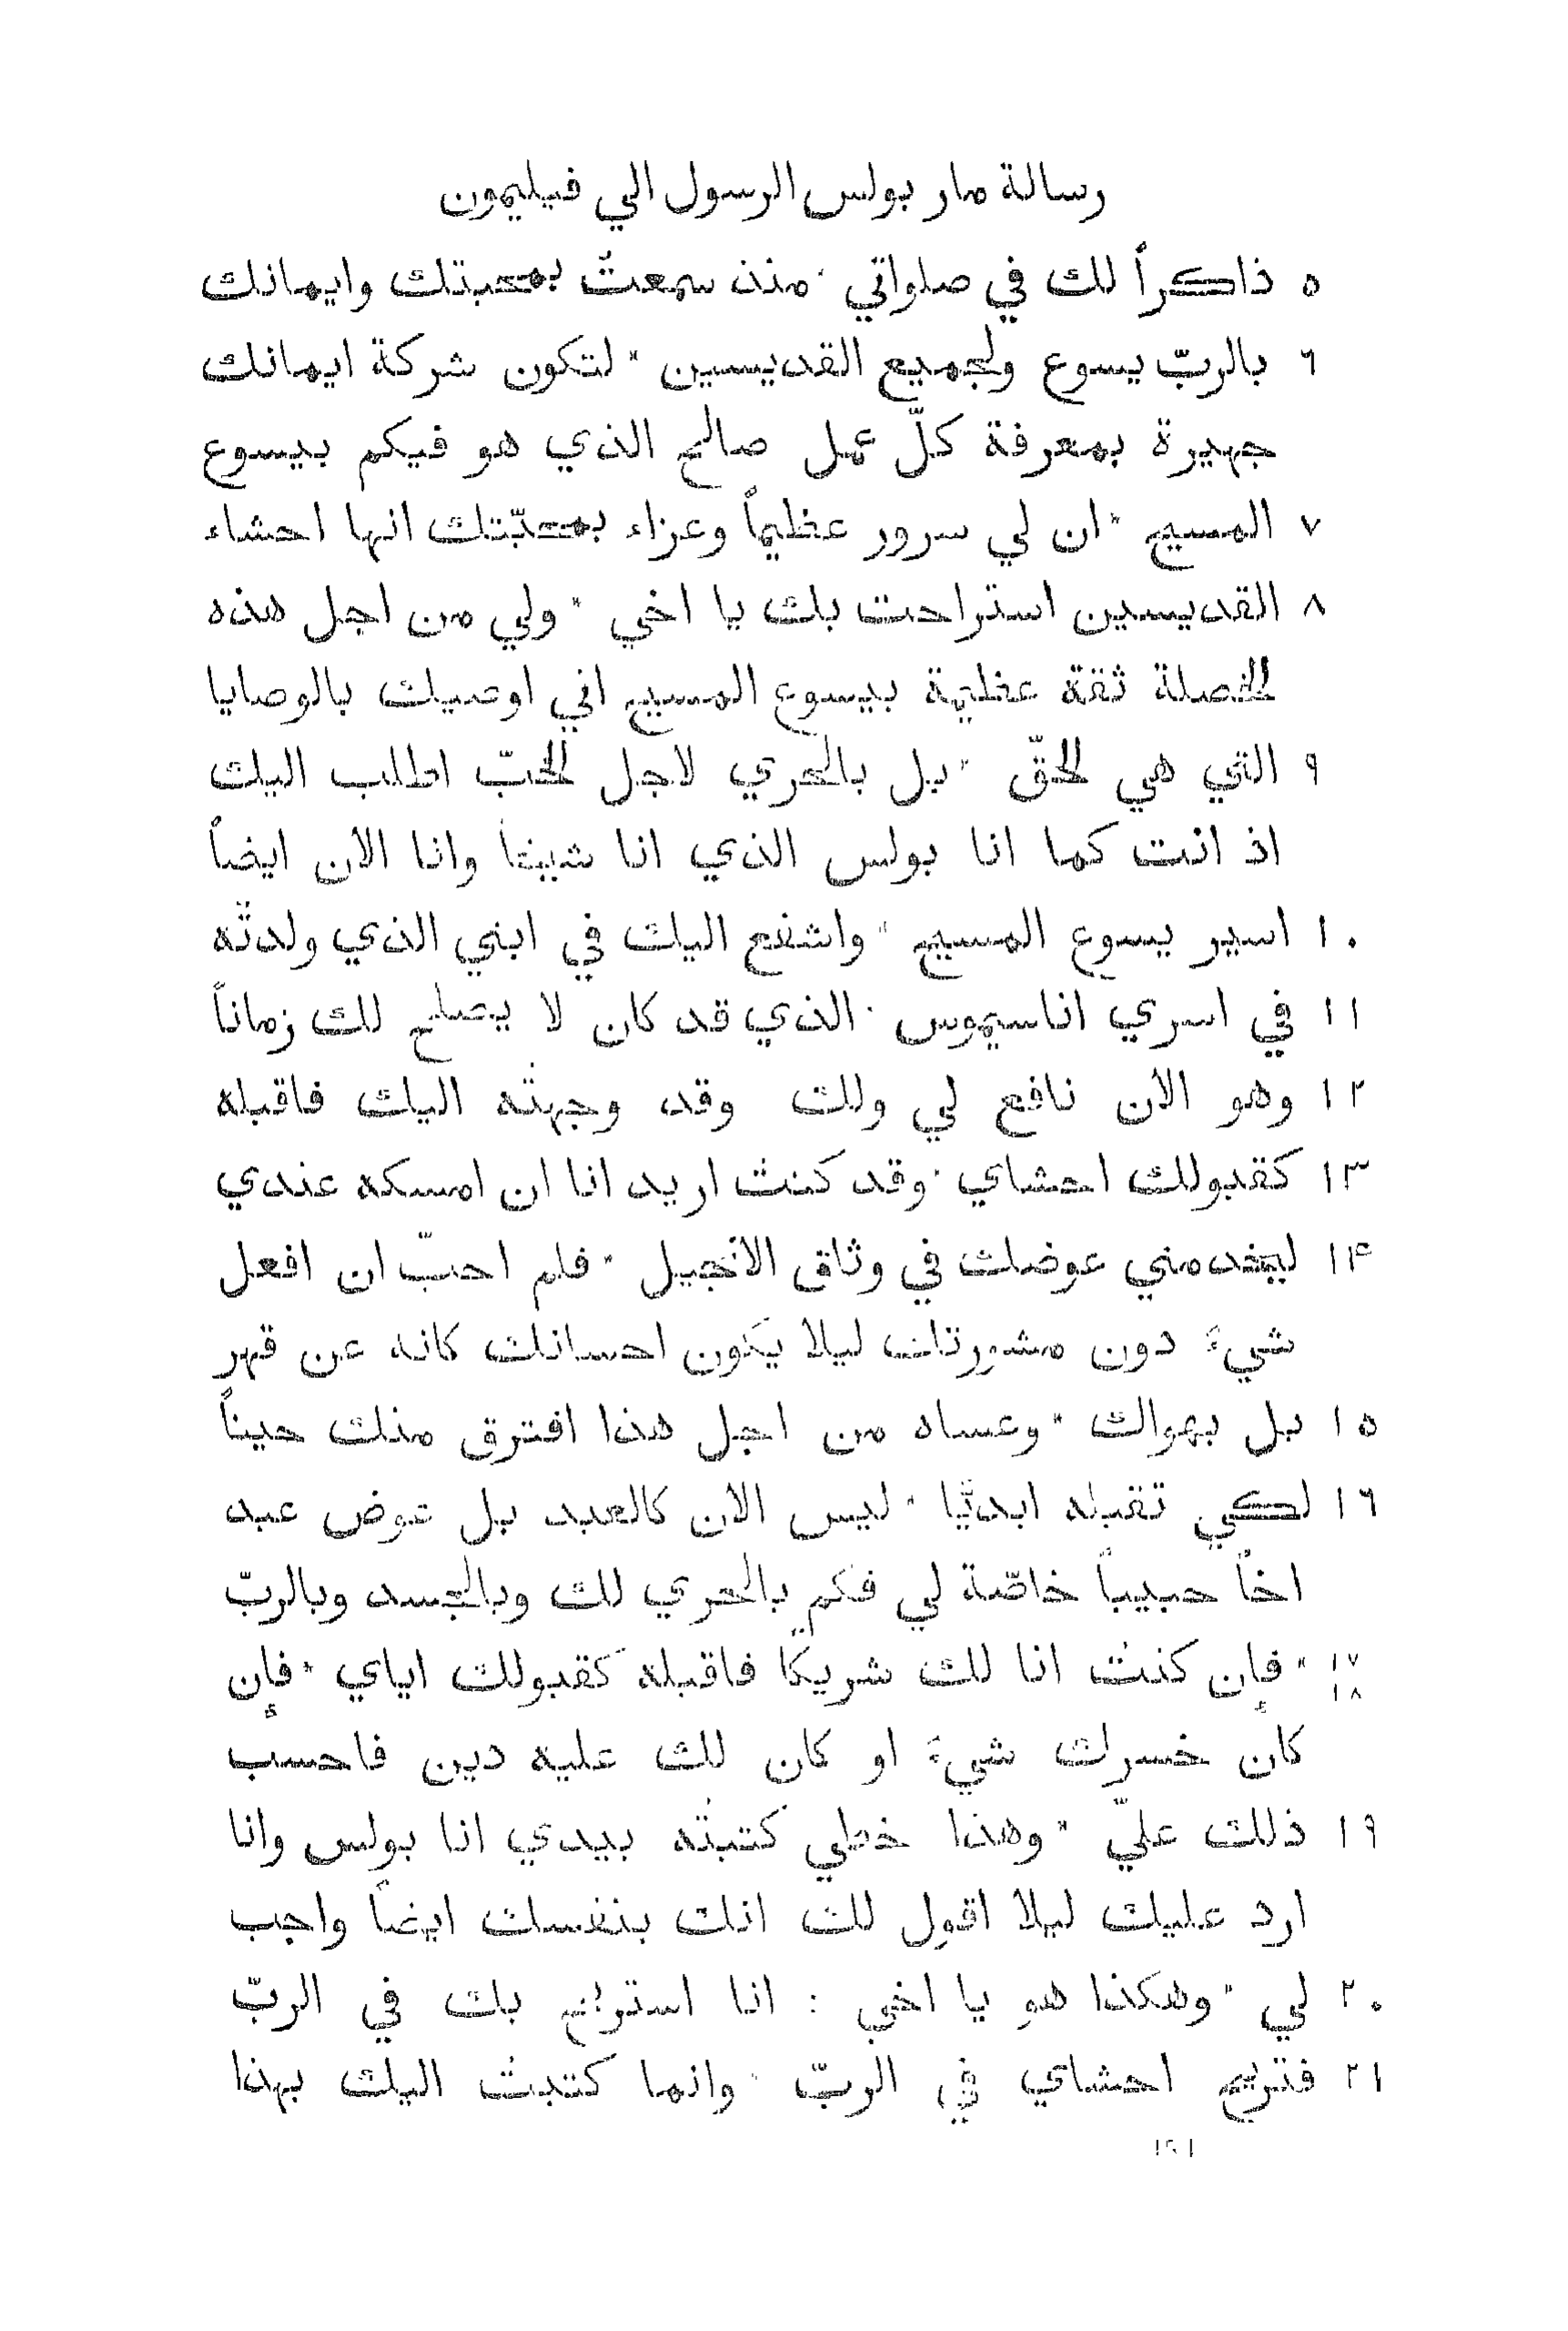 رسالة مار بولس الرسول الي فيليمون
٥ ذاكراً لك في صلواتي ٠ منذ سمعتُ بمحبتك وايمانك
٦ بالربّ يسوع ولجميع القديسين * لتكون شركة ايمانك
جهيرة بمعرفة كلّ عمل صالح الذي هو فيكم بيسوع
٧ المسيح * ان لي سرور عظيماً وعزاء بمحبّتك انها احشاء
٨ القديسين استراحت بك يا اخي * ولي من اجل هذه
الخصلة ثقة عظيمة بيسوع المسيح اني اوصيك بالوصايا
٩ التي هي الحقّ * بل بالحري لاجل الحبّ اطلب اليك
اذ انت كما انا بولس الذي انا شيخاً وانا الان ايضاً
١٠ اسير يسوع المسيح * واشفع اليك في ابني الذي ولدتُه
١١ في اسري اناسيموس ٠ الذي قد كان لا يصلح لك زماناً
١٢ وهو الان نافع لي ولك وقد وجهتُه اليك فاقبله
١٣ كقبولك احشاي ٠ وقد كنتُ اريد انا ان امسكه عندي
١۴ ليخدمني عوضك في وثاق الانجيل * فلم احبّ ان افعل
شيءً دون مشورتك ليلا يكون احسانك كانه عن قهر
١٥ بل بهواك * وعساه من اجل هذا افترق منك حيناً
١٦ لكي تقبله ابديّا * ليس الان كالعبد بل عوض عبد
اخاً حبيباً خاصّة لي فكم بالحري لك وبالجسد وبالربّ
١٧ * فإن كنتُ انا لك شريكًا فاقبله كقبولك اياي * فإن
١٨
كان خسرك شيءً او كان لك عليه دين فاحسب
١٩ ذلك عليّ * وهذا خطي كتبتُه بيدي انا بولس وانا
ارد عليك ليلا اقول لك انك بنفسك ايضاً واجب
٢٠ لي * وهكذا هو يا اخي : انا استريح بك في الربّ
٢١ فتريح احشاي في الربّ ٠ وانما كتبتُ اليك بهذا